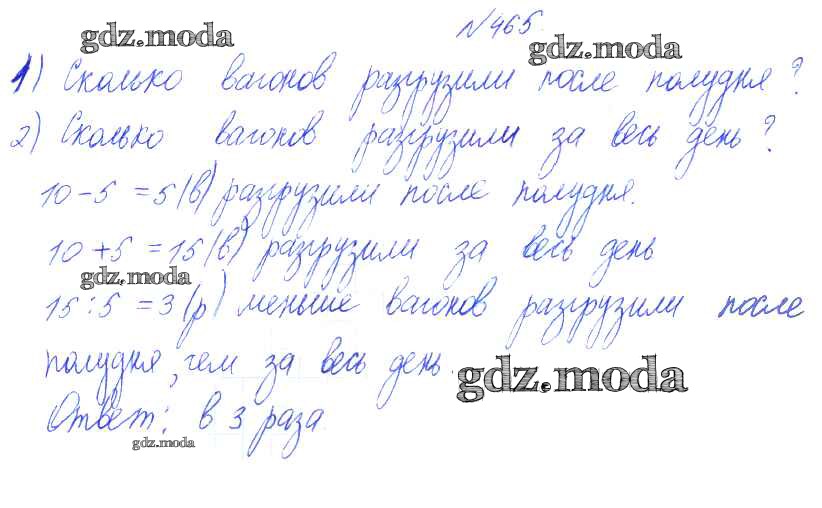 №465.
gdz.moda
gdz.moda
1) Сколько вагонов разгрузили после полудня?
2) Сколько вагонов разгрузили за весь день?
10-5 =5(в) разгрузили после полудня.
10+5 =15(в) разгрузили за весь день
gdz.moda
15:5 =3(р) меньше вагонов разгрузили после
полудня, чем за весь день.
gdz.moda
Ответ: в 3 раза.
gdz.moda